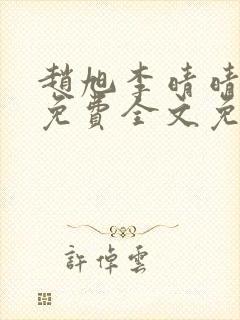 趙旭李晴晴
免費全文免
許倬雲